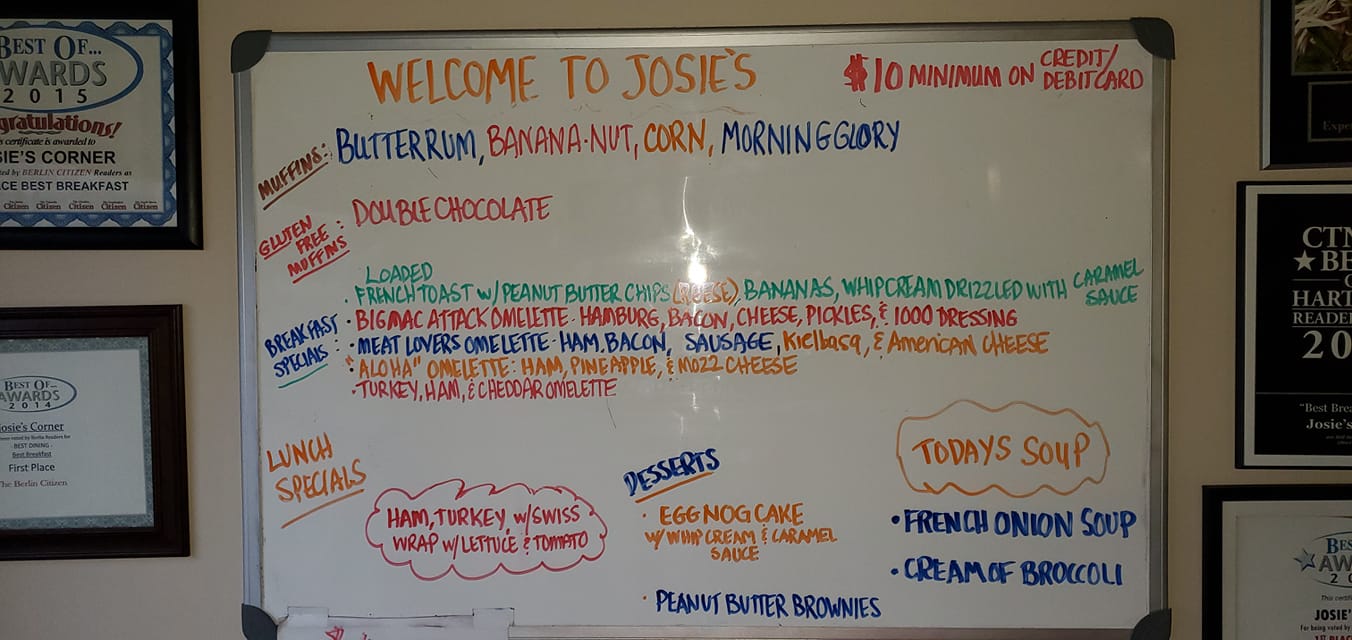 BEST OF...
AWARDS
2015
Congratulations!
certificate is awarded to
SIE'S CORNER
ted by BERLIN CITIZEN Readers as
CE BEST BREAKFAST
Citizen Citizen Citizen Citizen
BEST OF...
AWARDS
2014
Josie's Corner
BEST DINING
Best Breakfast
First Place
The Berlin Citizen
WELCOME TO JOSIE'S
$10 MINIMUM ON CREDIT/
DEBIT CARD
MUFFINS: BUTTERRUM, BANANA-NUT, CORN, MORNING GLORY
GLUTEN
FREE
MUFFINS : DOUBLE CHOCOLATE
BREAKFAST
SPECIALS:
LOADED
· FRENCH TOAST W/ PEANUT BUTTER CHIPS (REESE), BANANAS, WHIP CREAM DRIZZLED WITH CARAMEL
SAUCE
· BIG MAC ATTACK OMELETTE - HAMBURG, BACON, CHEESE, PICKLES, & 1000 DRESSING
· MEAT LOVERS OMELETTE - HAM, BACON, SAUSAGE, Kielbasa, & American CHEESE
· "ALOHA" OMELETTE: HAM, PINEAPPLE, & MOZZ CHEESE
· TURKEY, HAM, & CHEDDAR OMELETTE
LUNCH
SPECIALS
HAM, TURKEY, W/SWISS
WRAP W/ LETTUCE & TOMATO
DESSERTS
· EGG NOG CAKE
W/ WHIP CREAM & CARAMEL
SAUCE
· PEANUT BUTTER BROWNIES
TODAYS SOUP
• FRENCH ONION SOUP
• CREAM OF BROCCOLI
CTN
★BE
HART
READE
20
"Best Brea
Josie's
BES
AW
JOSIE'
For being voted by